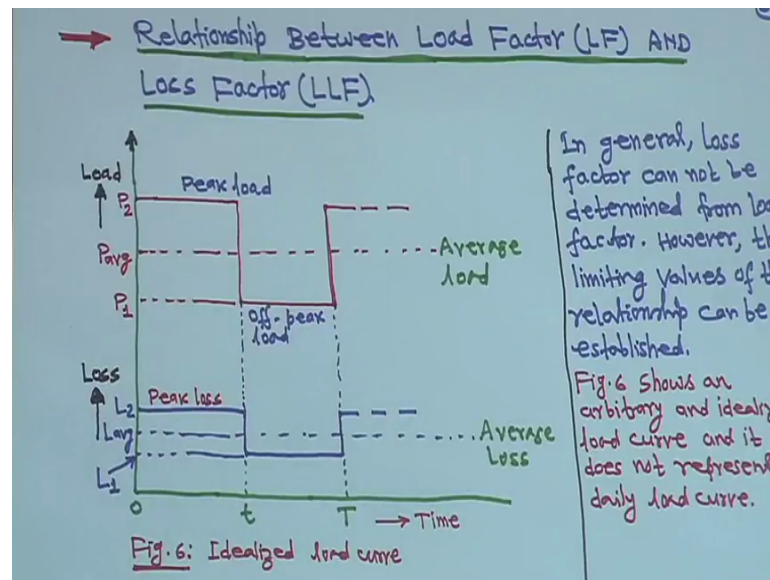 → Relationship Between Load Factor (LF) AND
Loss Factor (LLF).
Load
Peak load
P2
Pavg
Average
load
P1
Off-peak
load
Loss
Peak loss
L2
Lavg
Average
Loss
L1
0
t
T
→ Time
Fig. 6: Idealized load curve
In general, loss
factor can not be
determined from
factor. However,
limiting values of
relationship can be
established.
Fig. 6 shows an
arbitrary and
load curve and it
does not
daily load curve.